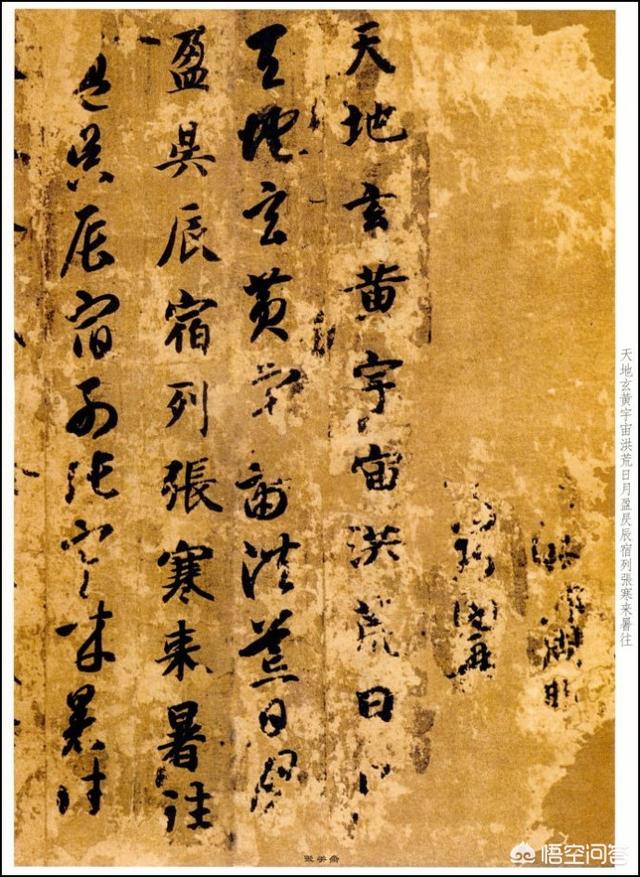 天地玄黃宇宙洪荒日月盈昃辰宿列張寒来暑往
天地玄黄宇宙洪荒日
天地玄黄宇宙洪荒日月
盈昃辰宿列張寒来暑往
盈昃辰宿列張寒来暑往
悟空问答